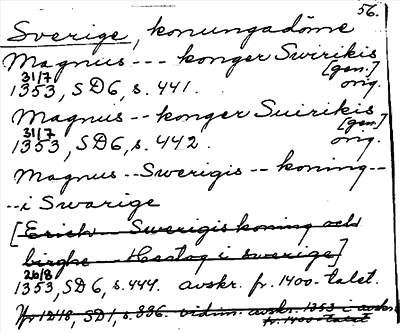 56.
Sverige, konungadöme
Magnus --- konger Swirikis
[gen.]
31/7
1353, SD6, s. 441. orig.
Magnus -- konger Suirikis
[gen.]
31/7
1353, SD6, s. 442. orig.
Magnus -- Swerigis -- koning --
-- i Swarige
[Erich -- Swerigis koning och
birghe -- Hertog i swerige]
26/8
1353, SD6, s. 444. avskr. fr. 1400-talet.
fr 1248, SD1, s. 336. vidim. avskr. 1353 i avskr.
fr. 1400-talet